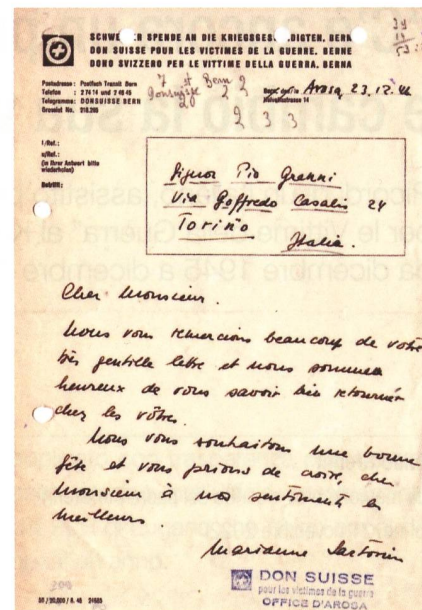 SCHWEIZER SPENDE AN DIE KRIEGSGESCHÄDIGTEN. BERN
DON SUISSE POUR LES VICTIMES DE LA GUERRE. BERNE
DONO SVIZZERO PER LE VITTIME DELLA GUERRA. BERNA
Postadresse: Postfach Transit Bern
Telefon : 2 74 14 und
Telegramme: DONSUISSE BERN
Girokonto
7 st Bern 2
Donsuisse 2 2
2
2 3 3
Arosa, 23.12.46
I/Ref.:
u/Ref.:
(in Ihrer Antwort bitte
wiederholen)
Betrifft:
Signor Pio Granni
Via Goffredo Casalis 24
Torino
Italia.
Cher Monsieur.
Nous vous remercions beaucoup de votre
très gentille lettre et nous sommes
heureux de vous savoir bien retourner
chez les vôtres.
Nous vous souhaitons une bonne
fête et vous prions de croire, cher
Monsieur à nos sentiments les
meilleurs
Marianne
DON SUISSE
pour les victimes de la guerre
OFFICE D'AROSA